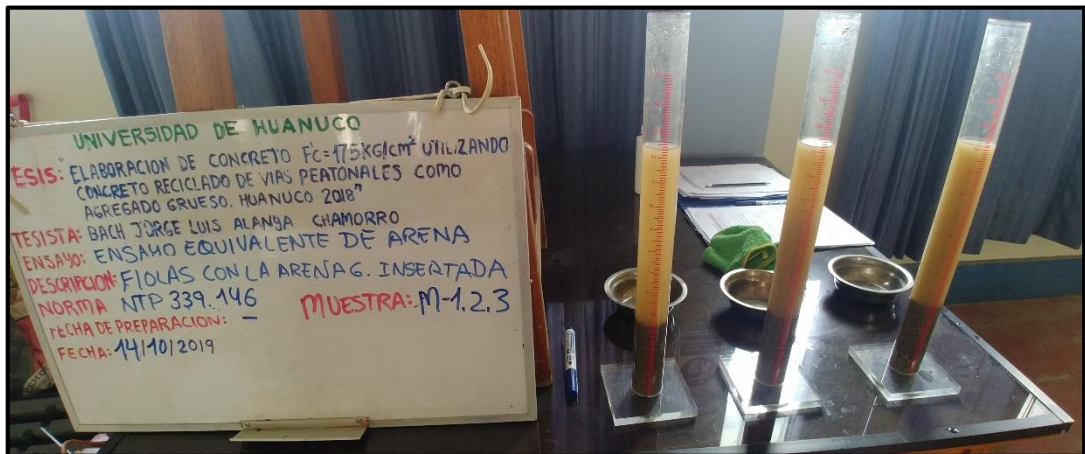 UNIVERSIDAD DE HUANUCO
ESIS: "ELABORACION DE CONCRETO F'C=175KG/CM² UTILIZANDO
CONCRETO RECICLADO DE VIAS PEATONALES COMO
AGREGADO GRUESO. HUANUCO 2018"
TESISTA: BACH JORGE LUIS ALANYA CHAMORRO
ENSAYO: ENSAYO EQUIVALENTE DE ARENA
DESCRIPCION: FIOLAS CON LA ARENA G. INSERTADA
NORMA NTP 339.146 MUESTRA: M-1.2.3
FECHA DE PREPARACION:
FECHA: 14/10/2019